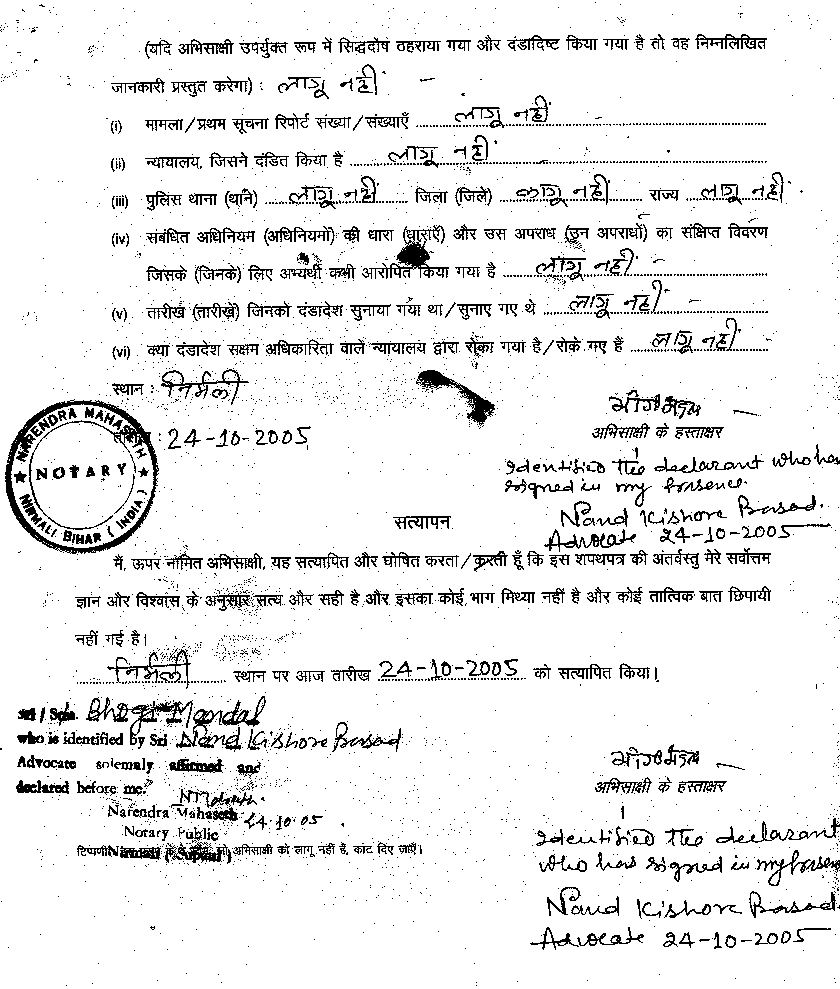 (यदि अभिसाक्षी उपर्युक्त रूप में सिद्धदोष ठहराया गया और दंडादिष्ट किया गया है तो वह निम्नलिखित
जानकारी प्रस्तुत करेगा) : लागू नहीं –
(i) मामला/प्रथम सूचना रिपोर्ट संख्या/संख्याएँ लागू नहीं
(ii) न्यायालय, जिसने दंडित किया है लागू नहीं
(iii) पुलिस थाना (थाने) लागू नहीं जिला (जिले) लागू नहीं राज्य लागू नहीं
(iv) संबंधित अधिनियम (अधिनियमों) की धारा (धाराएँ) और उस अपराध (उन अपराधों) का संक्षिप्त विवरण
जिसके (जिनके) लिए अभ्यर्थी कभी आरोपित किया गया है लागू नहीं –
(v) तारीख (तारीखें) जिनको दंडादेश सुनाया गया था/सुनाए गए थे लागू नहीं –
(vi) क्या दंडादेश सक्षम अधिकारिता वाले न्यायालय द्वारा रोका गया है/रोके गए हैं लागू नहीं –
स्थान : निर्मली
: 24-10-2005
NARENDRA MAHASETH
NOTARY
NIRMALI BIHAR (INDIA)
अभिसाक्षी के हस्ताक्षर
Identified the declarant who has
signed in my
Nand Kishore Prasad.
Advocate 24-10-2005
सत्यापन
मैं, ऊपर नामित अभिसाक्षी, यह सत्यापित और घोषित करता/करती हूँ कि इस शपथपत्र की अंतर्वस्तु मेरे सर्वोत्तम
ज्ञान और विश्वास के अनुसार सत्य और सही है और इसका कोई भाग मिथ्या नहीं है और कोई तात्विक बात छिपायी
नहीं गई है।
निर्मली स्थान पर आज तारीख 24-10-2005 को सत्यापित किया।
Sri / Smt. Bhogi Mandal
who is identified by Sri Nand Kishore Prasad
Advocate solemaly affirmed and
declared before me.
Narendra Mahaseth 24.10.05.
Notary Public
Nirmali (Supaul)
टिप्पणी अभिसाक्षी को लागू नहीं हैं, काट दिए जाएँ।
अभिसाक्षी के हस्ताक्षर
Identified the declarant
who has signed in my
Nand Kishore Prasad
Advocate 24-10-2005